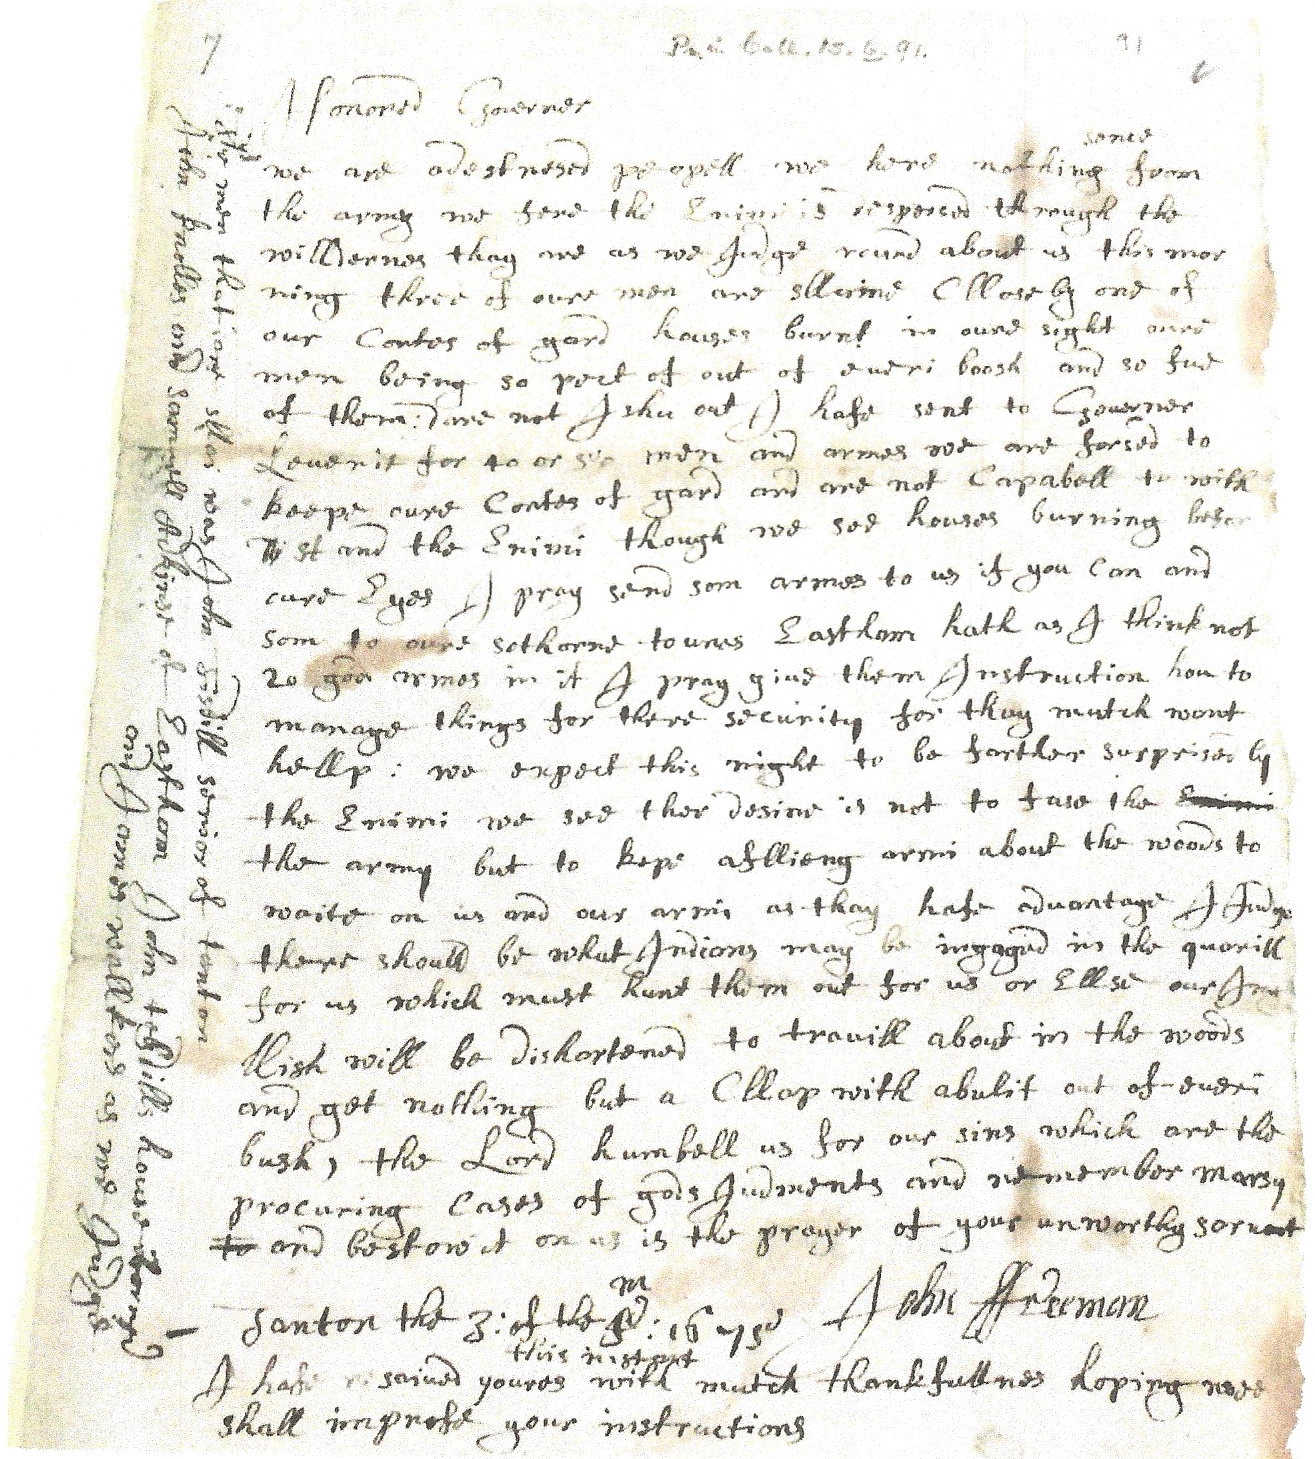 7
91
Honored Governer
sence
we are a destresed peopell we here nothing from
the army we fere the Enimi is respersed through the
willdernes thay are as we Judge round about us this mor
ning three of oure men are sllaine Cllose by one of
our Contes of gard houses burnt in oure sight oure
men being so pect of out of everi boosh and so five
of them: dare not Ishu out I hafe sent to Governer
Leverit for to or men and armes we are forsed to
keepe oure Contes of gard and are not Capabell to with
stand the Enimi though we see houses burning befor
oure Eyes I pray send som armes to us if you Can and
som to oure sothorne townes Eastham hath as I think not
20 good armes in it I pray give them Instruction how to
manage things for there security for thay mutch want
hellp: we expect this night to be farther surprised by
the Enimi we see ther desine is not to fase the Enimi
the army but to kepe a fllieng armi about the woods to
waite on us and our armi as thay hafe advantage I Judge
there should be what Indions may be ingaged in the quarill
for us which must hunt them out for us or Ellse our Ing
llish will be dishartened to travill about in the woods
and get nothing but a Cllap with a bulit out of everi
bush, the Lord humbell us for our sins which are the
procuring Cases of gods Judments and remember marsy
to and bestow it on us is the prayer of your unworthy sarvant
John Freeman
m
Tanton the 3: of the 4: 1675
this instant
I hafe resaived youres with mutch thankfullnes hoping wee
shall improfe your instructions
the men that are sllain was John Tisdill senior of tanton
John Knolles and Samuell Atkins of Eastham John tisdills house burnt
and James wallkers as we Judge